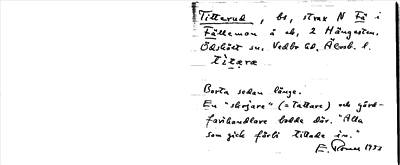 Titterud, bs, strax N Få i
Fällemon å ek, 2 Hängesten,
Ödskölt sn, Vedbo hd, Älvsb. l.
titæra
Borta sedan länge.
En "skojare" (= tattare) och gård-
farihandlare bodde där. "Alla
som gick förbi tittade in."
E. 1933